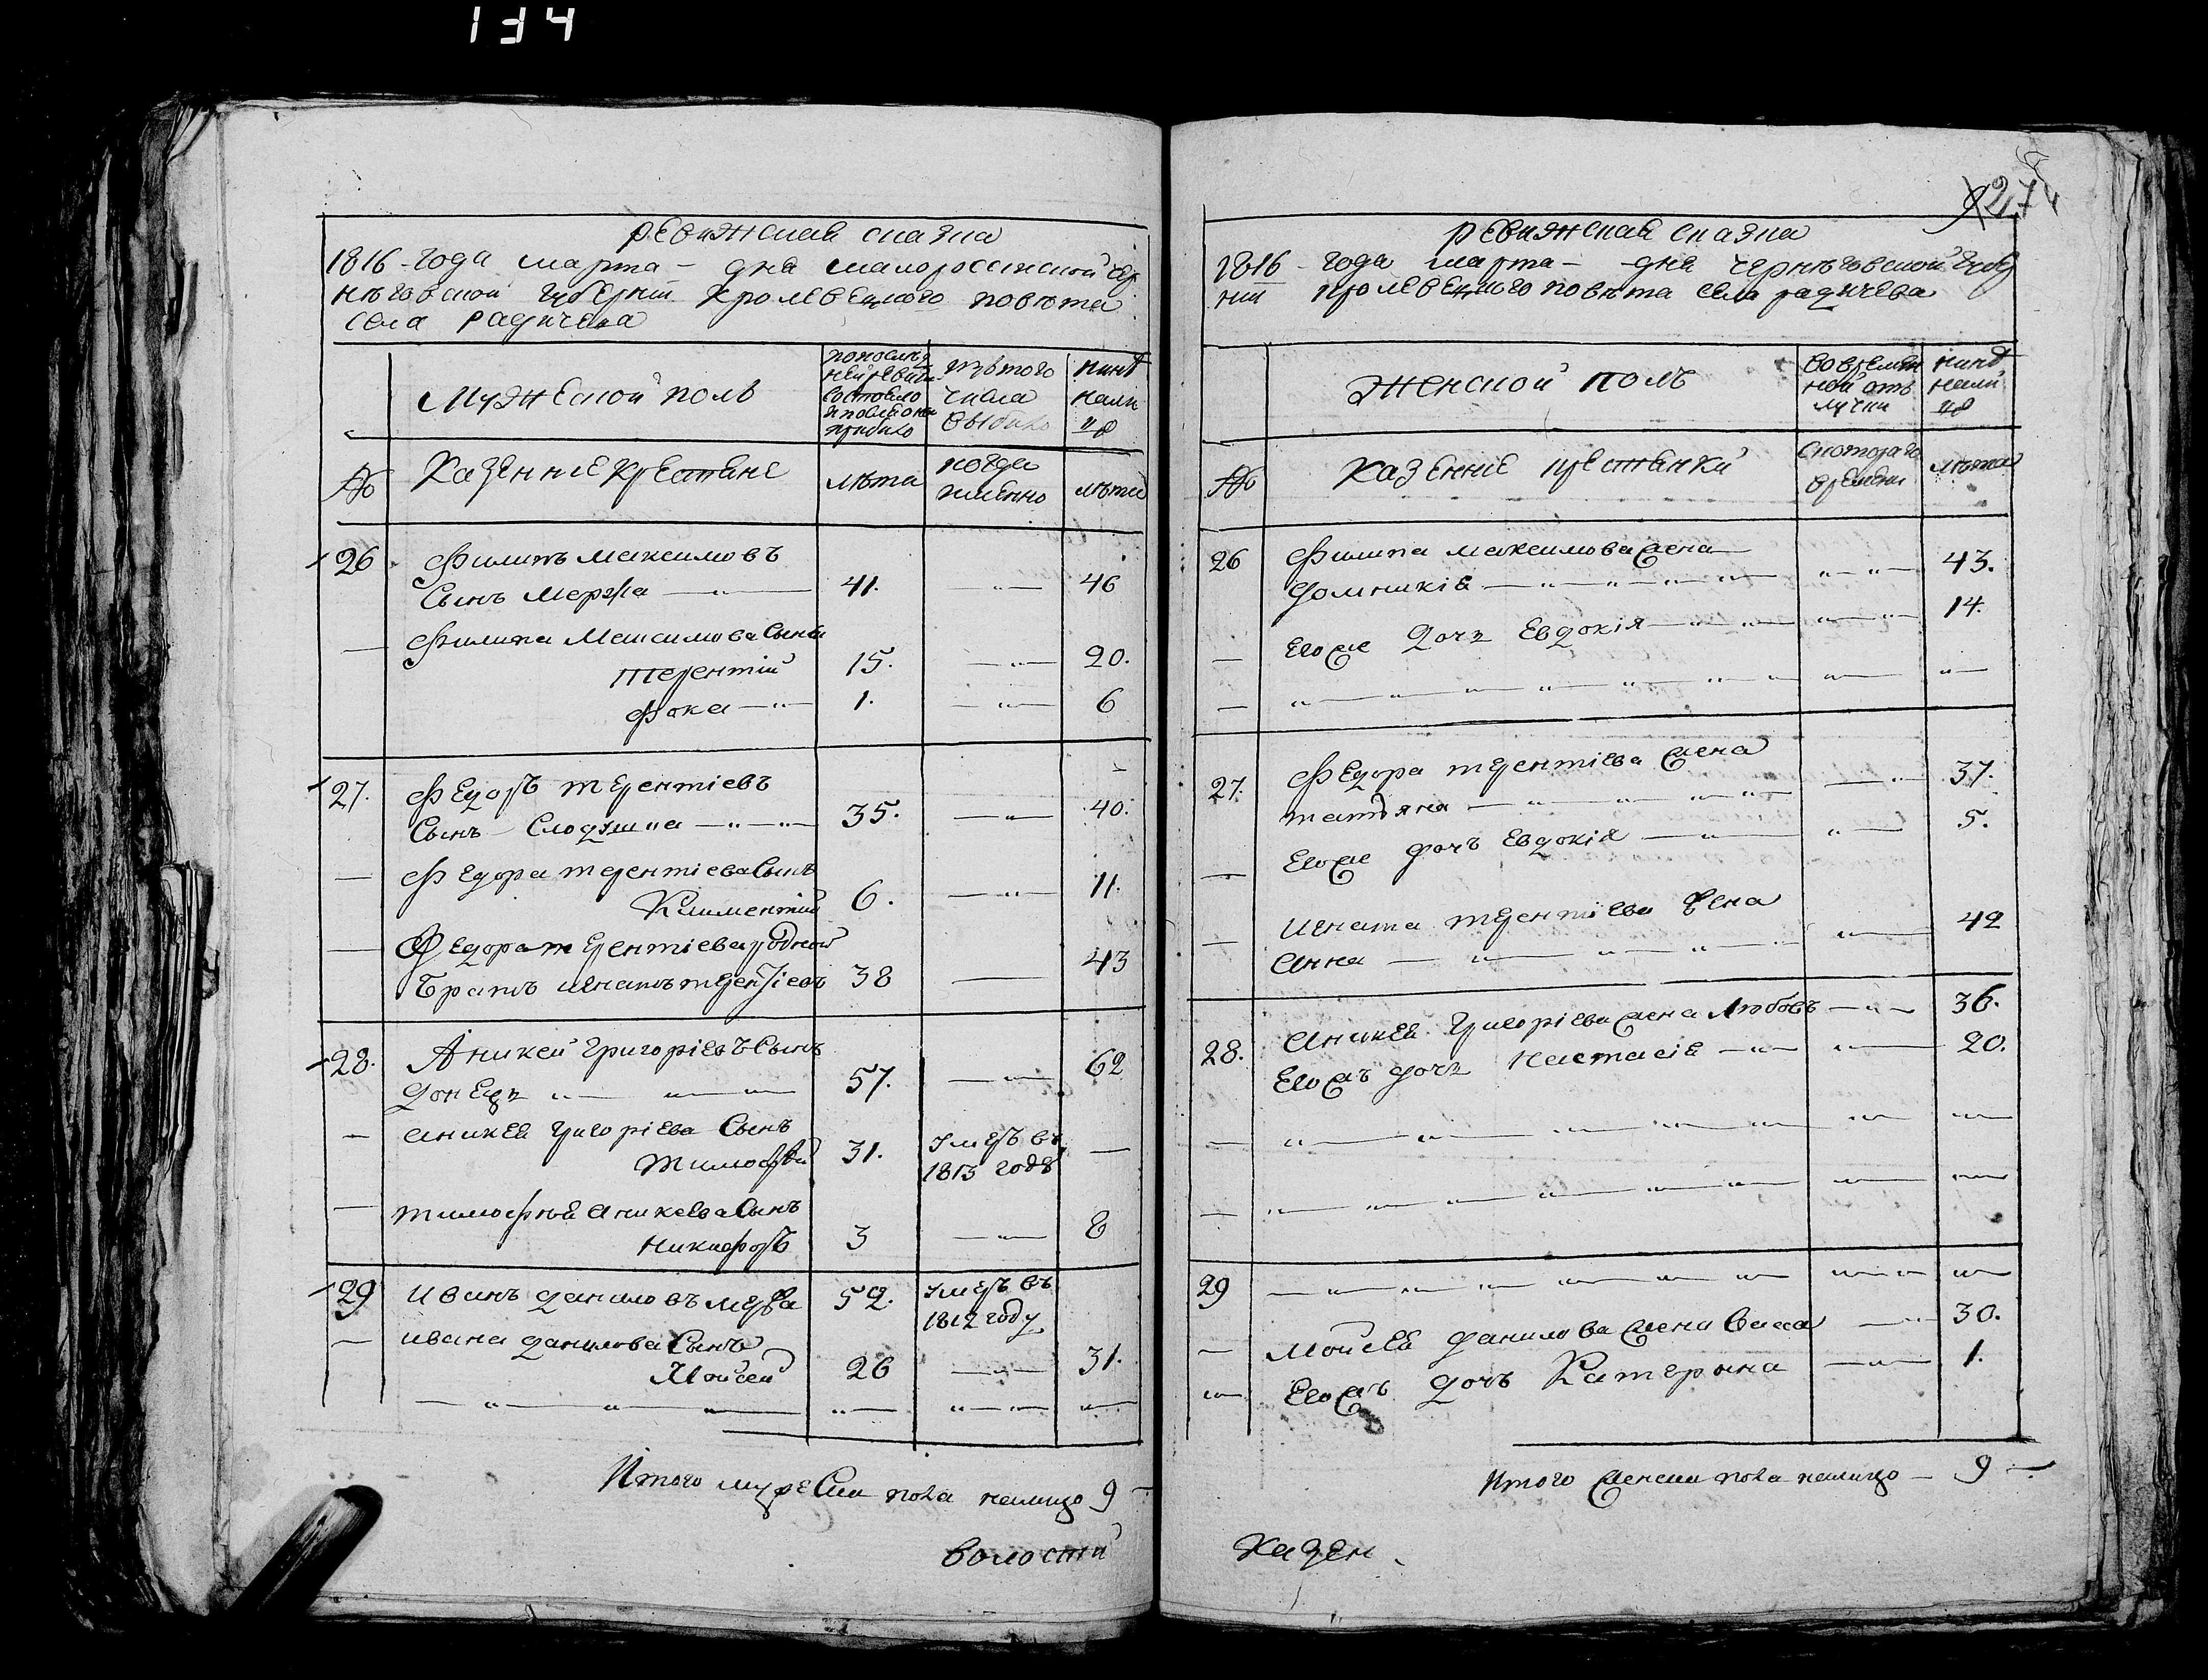 134
ревижская сказка
1816 года марта — дня малороссийской чер
нѣговской губернїи Кролевецкого повѣта
села радичева
мужеской полъ
изътого
числа
выбило
нинѣ
нали
цо
№
Казенние крестяне
лѣта
когда
имЕнно
лѣта
26
Филипъ максимовъ
Синъ Мерзла
41.
46
Филипа Максимова Сини
терентїй
15.
20.
фока
1.
6
27.
ФЕдоръ терентїевъ
Синъ
35.
40.
ФЕдора терентїева Синъ
Климентїй
6.
11.
ФЕдора терентїева родной
братъ игнатъ терентїевъ
38
43
28.
Аникей григорїевъ Синъ
донЕцъ
57.
62
аникЕя григорїева Синъ
Тимофѣй
31.
умеръ въ
1813 годѣ
—
тимофѣя аникеева Синъ
никифоръ
3
8
29
иванъ даниловъ
52.
умеръ въ
1812 году
ивана данилова Синъ
Мойсей
26
31.
Итого мужеска пола налицо 9
волостнй
274
ревижская сказка
1816 года марта — дня чернѣговской губер
нїи кролевЕцкого повѣта села радичева
женской полъ
во времЕн
ной отъ
лучки
нинѣ
нали
цо
№
казенние крестянки
с которого
времЕни
лѣта
26
Филипа максимова жена
домникїя
43.
Егоже дочъ Евдокїя
14.
27.
ФЕдора терентїева жена
татѣяна
37.
Егоже дочъ Евдокїя
5.
игната терентїева жена
анна
42
28.
аникЕя григорїева жена Любовъ
36.
Егожъ дочъ настасїя
20.
29
мойсЕя данилова жена васса
30.
Егожъ дочъ Катерина
1.
Итого женска пола налицо — 9
Казен